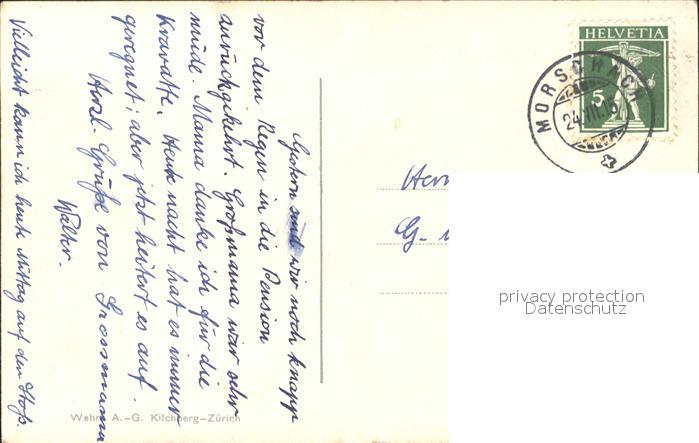 Gestern sind wir noch knapp
vor dem Regen in die Pension
zurückgekehrt. Großmama war sehr
müde. Mama danke ich für die
Kravatte. Heute nacht hat es immer
geregnet; aber jetzt heitert es auf.
Herzl. Grüße von Grossmama
Walter.
Vielleicht kann ich heute Mittag auf den Stoß.
HELVETIA
5
MORSCHACH
24.VII.15
G.
privacy protection
Datenschutz
Wehrli A.-G. Kilchberg-Zürich